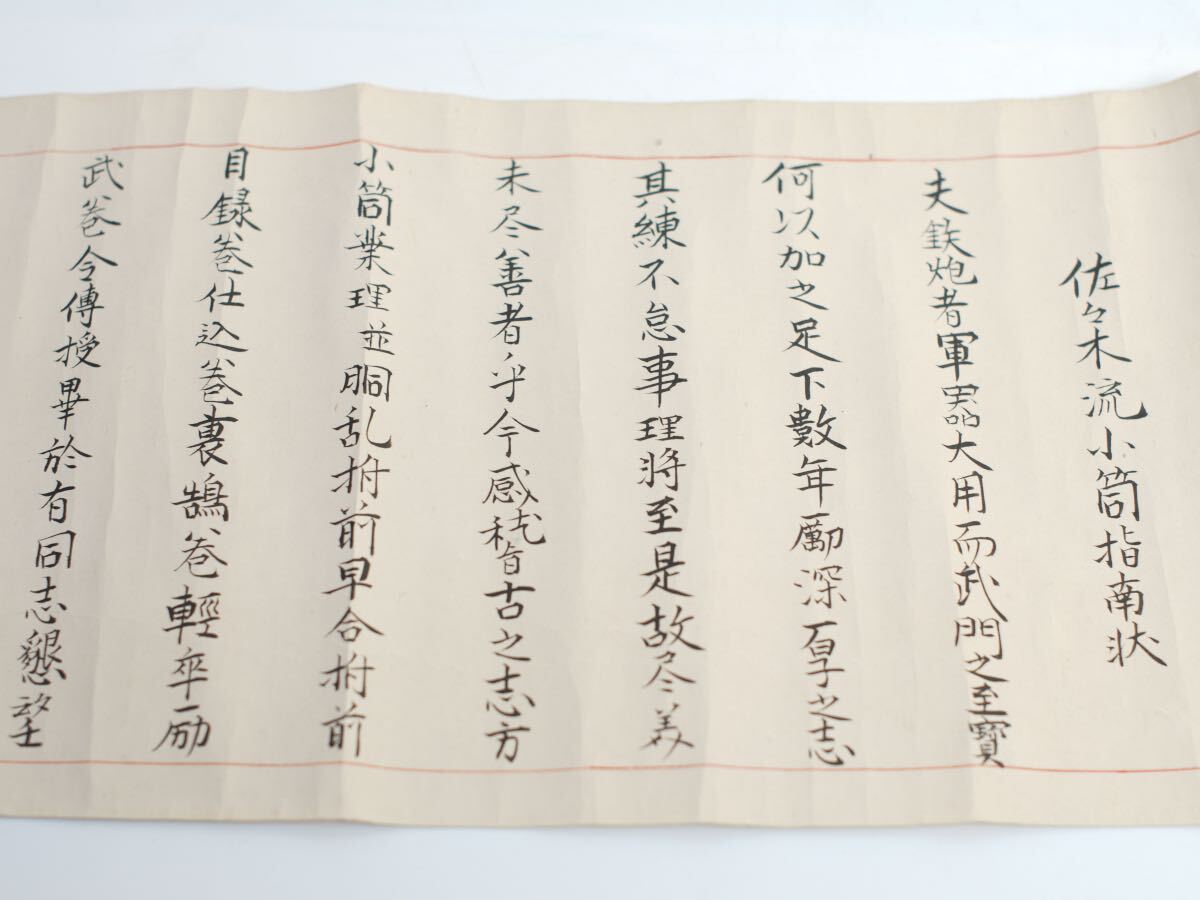 佐々木流小筒指南状
夫鉄炮者軍器大用而武門之至寶
何以加之足下數年勵深厚之志
其練不怠事理将至是故尽美
未尽善者乎今感稽古之志方
小筒業理並胴乱拵前早合拵前
目録巻仕込巻裏鵠巻輕卒励
武巻令傳授畢於有同志懇望